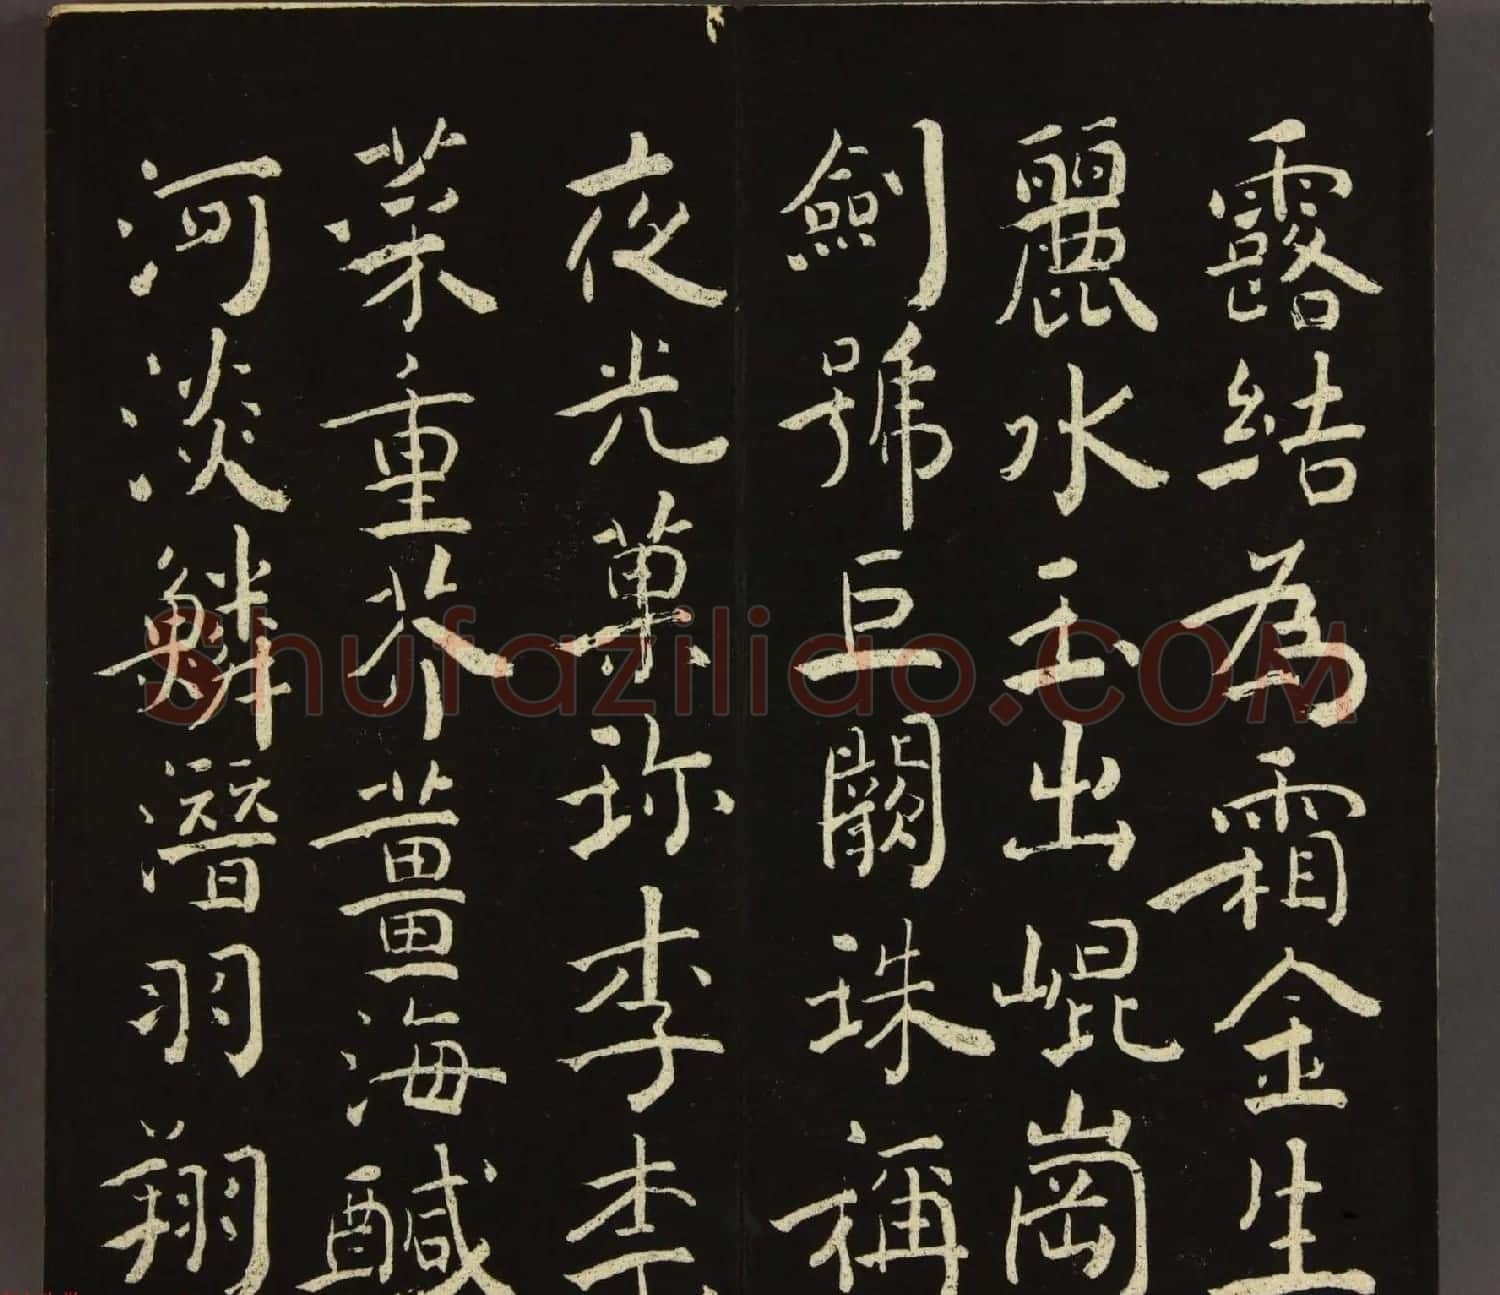 露結為霜金生
麗水玉出崐崗
劍號巨闕珠稱
夜光菓珎李柰
菜重芥薑海醎
河淡鱗潛羽翔
Shufaziliao.COM